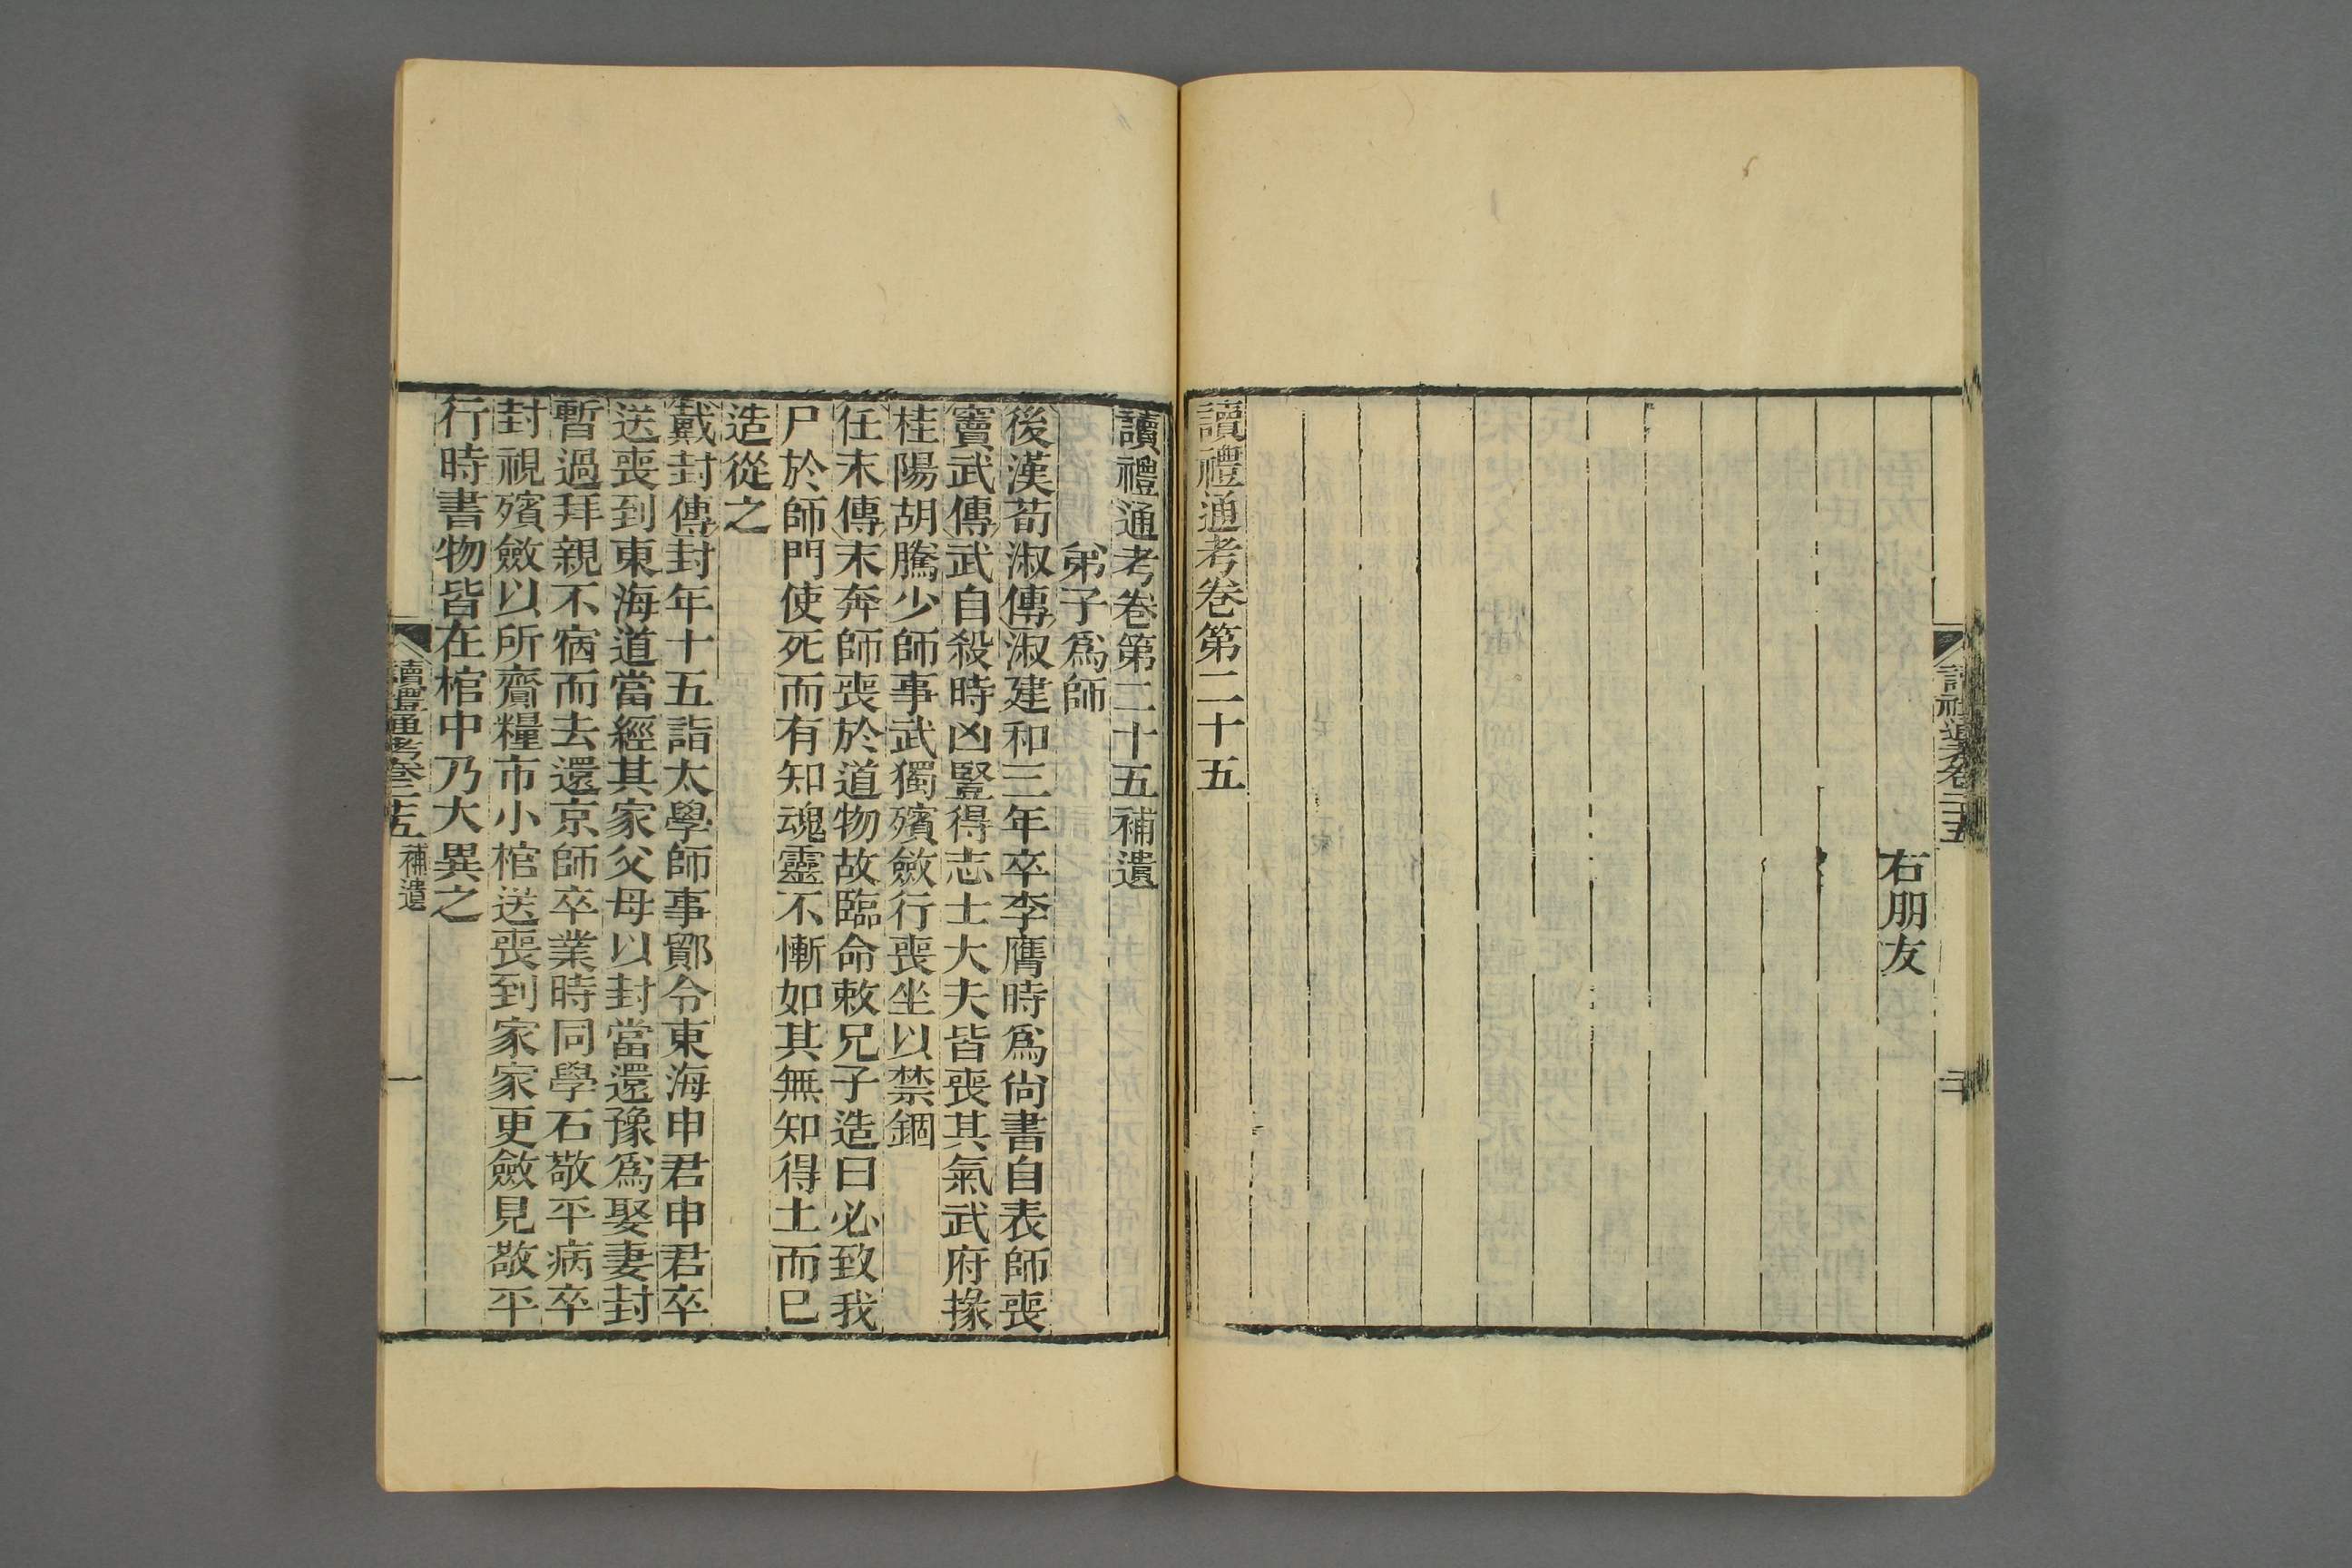 右朋友
讀禮通考卷第二十五
讀禮通考卷第二十五補遺
弟子爲師
後漢荀淑傳淑建和三年卒李膺時爲尙書自表師喪
竇武傳武自殺時凶豎得志士大夫皆喪其氣武府掾
桂陽胡騰少師事武獨殯斂行喪坐以禁錮
任末傳末奔師喪於道物故臨命敕兄子造曰必致我
尸於師門使死而有知魂靈不慚如其無知得土而已
造從之
戴封傳封年十五詣太學師事鄮令東海申君申君卒
送喪到東海道當經其家父母以封當還豫爲娶妻封
暫過拜親不宿而去還京師卒業時同學石敬平病卒
封視殯斂以所齎糧市小棺送喪到家家更斂見敬平
行時書物皆在棺中乃大異之
讀禮通考卷二十五 補遺 一